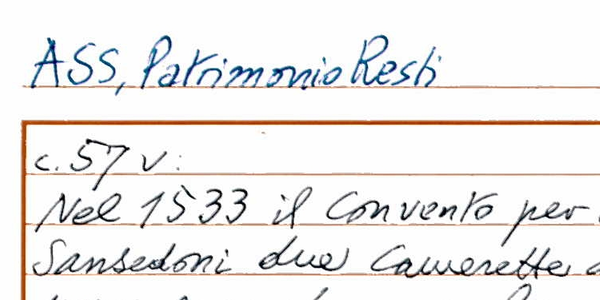 ASS, Patrimonio Resti
c. 57 v:
Nel 1533 il Convento per
Sansedoni due Camerette